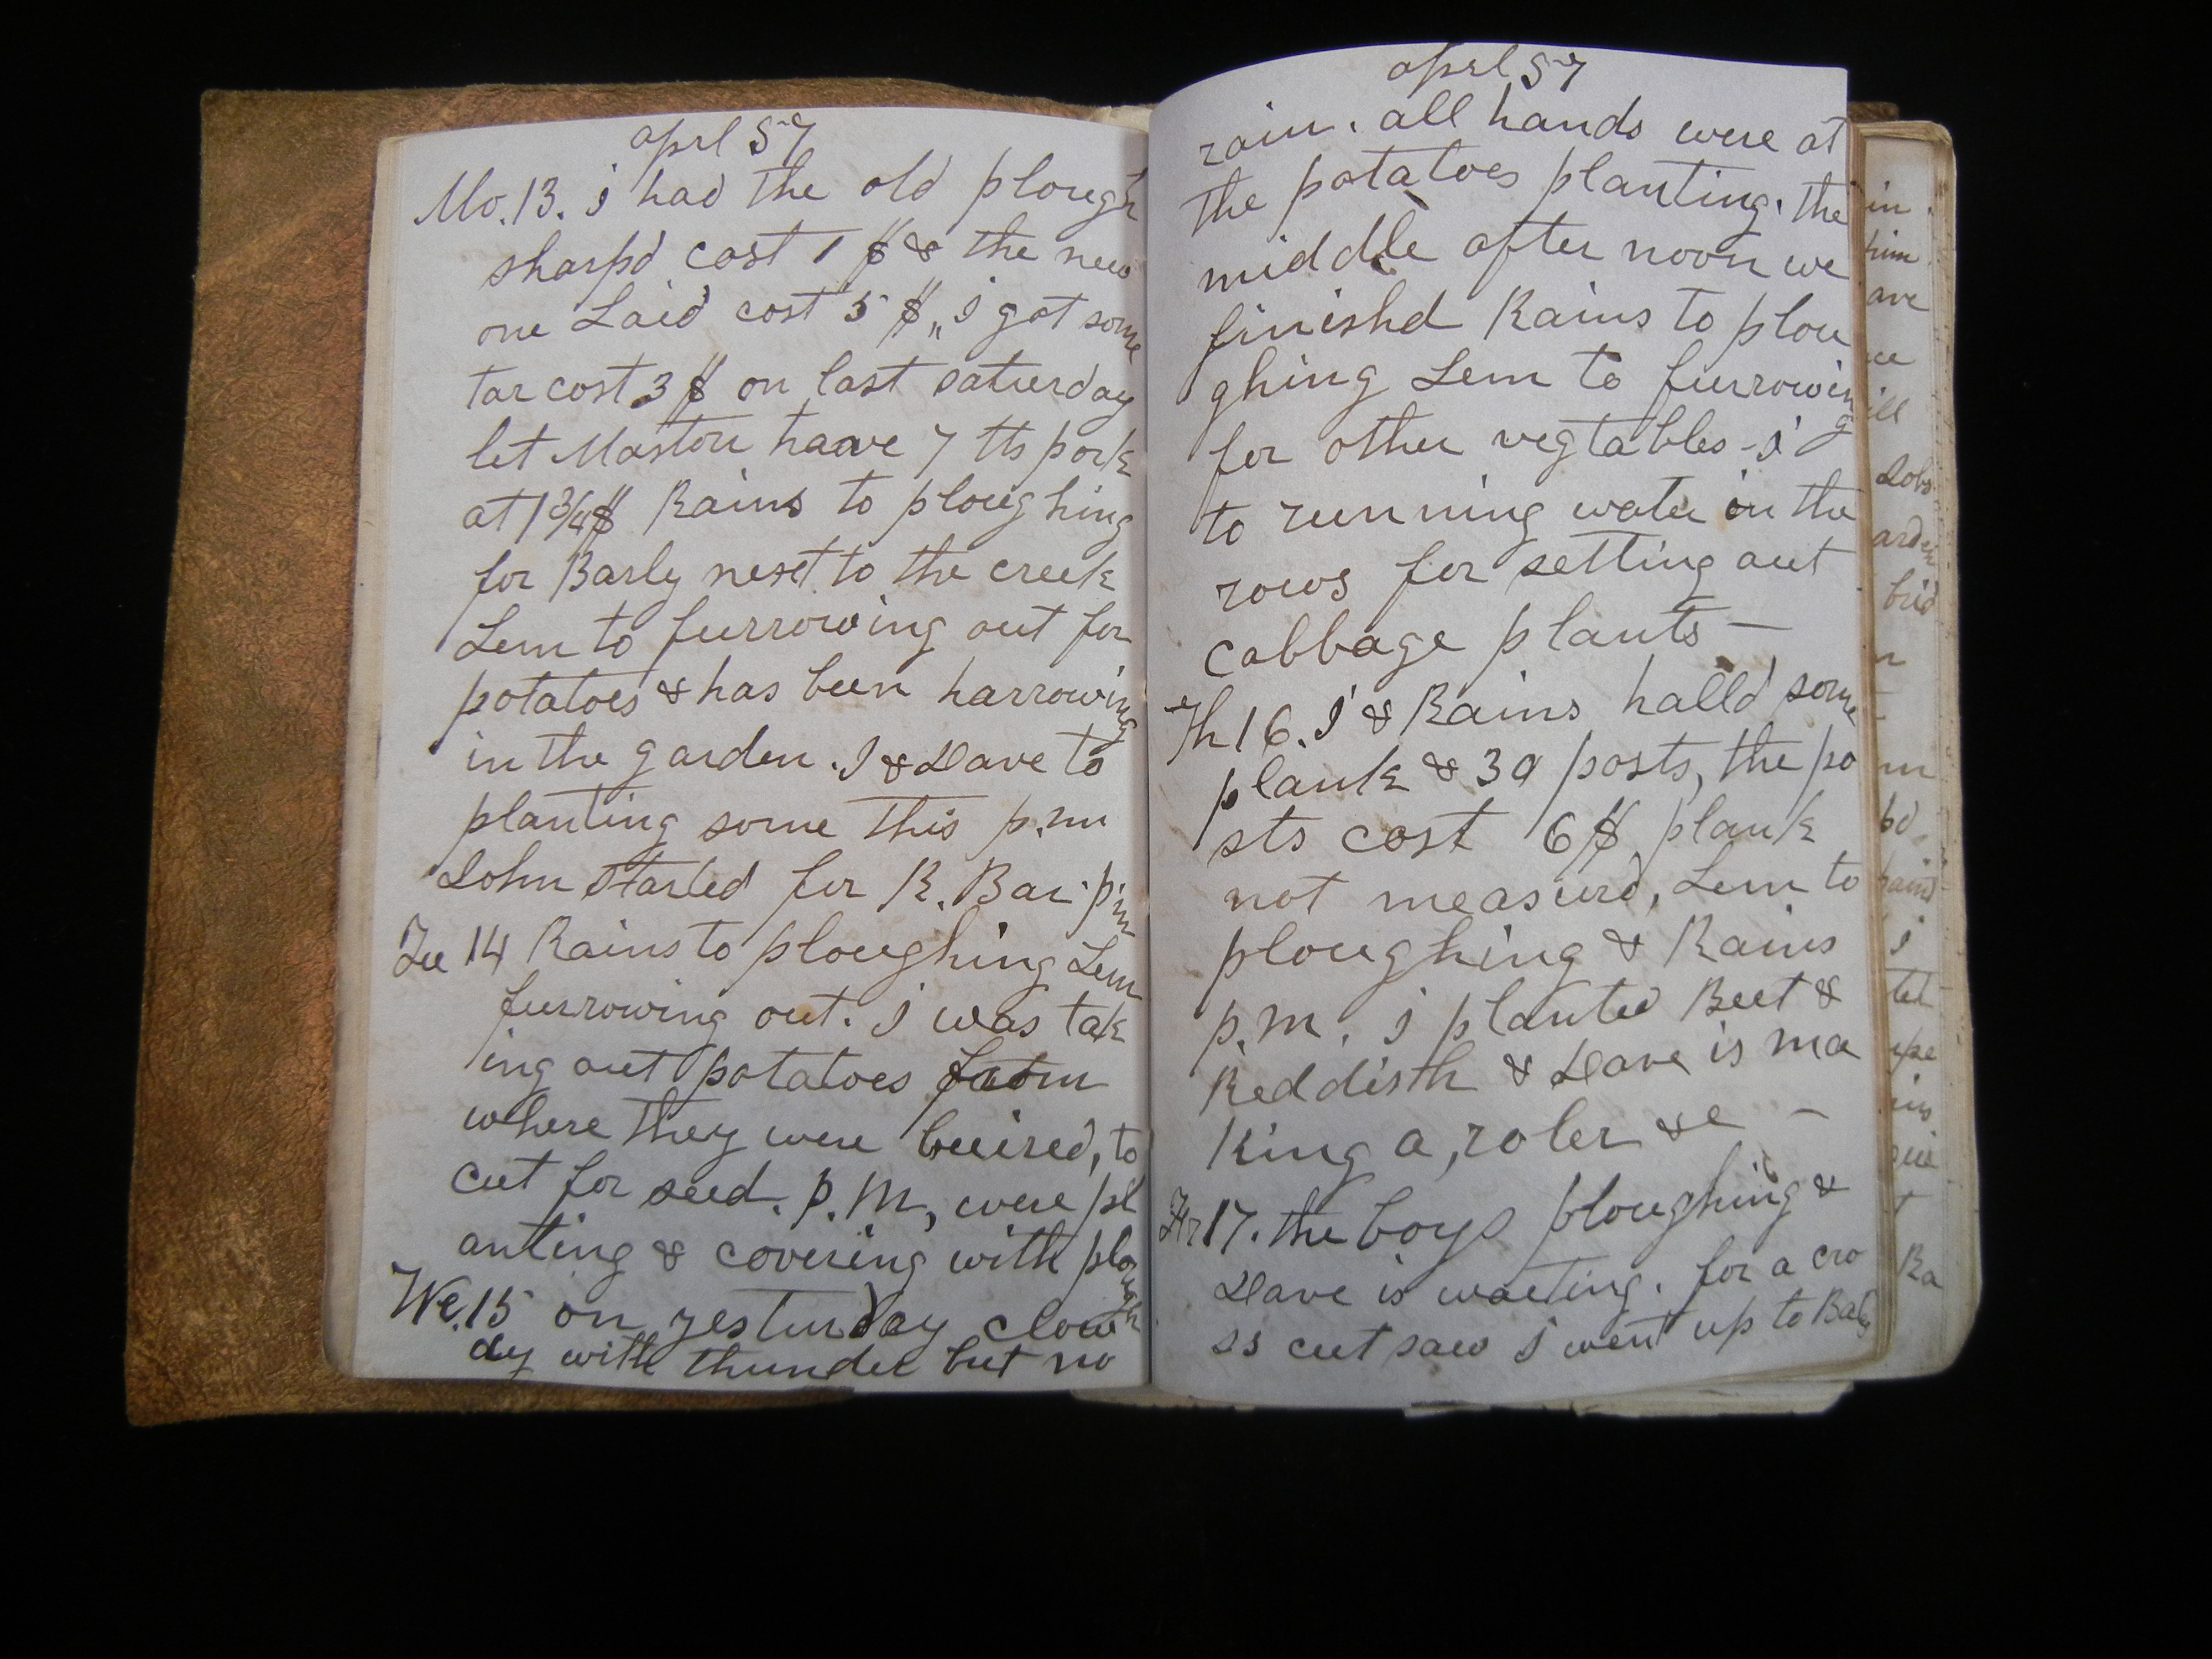 aprl 57
Mo. 13. i had the old plough
sharpd cost 1 $ & the new
one Laid cost 5 $,, i got some
tar cost 3 $ on last saturday
let Maston haave 7 lbs pork
at 1 3/4 $ Rains to ploughing
for Barly next to the creek
Lem to furrowing out for
potatoes & has been harrowing
in the garden. I & Dave to
planting some this p.m
John started for R. Bar. p m
Tu 14 Rains to ploughing Lem
furrowing out. i was tak
ing out potatoes from
where they were buired, to
cut for seed. P. M, were pl
anting & covering with plough
We. 15 on yesturday clow
dy with thunder but no
aprl 57
rain. all hands were at
the potatoes planting. the
middle after noon we
finishd Rains to plou
ghing Lem to furrowing
for other vegtables - i
to running water in the
rows for setting out
cabbage plants —
Th 16. I & Rains halld some
plank & 30 posts, the po
sts cost 6 $ plank
not measurd, Lem to
ploughing & Rains
p.m. i planted Beet &
Reddisth & Dave is ma
king a, roler &c —
Fr 17. the boys ploughing &
Dave is waeting. for a cro
ss cut saw i went up to